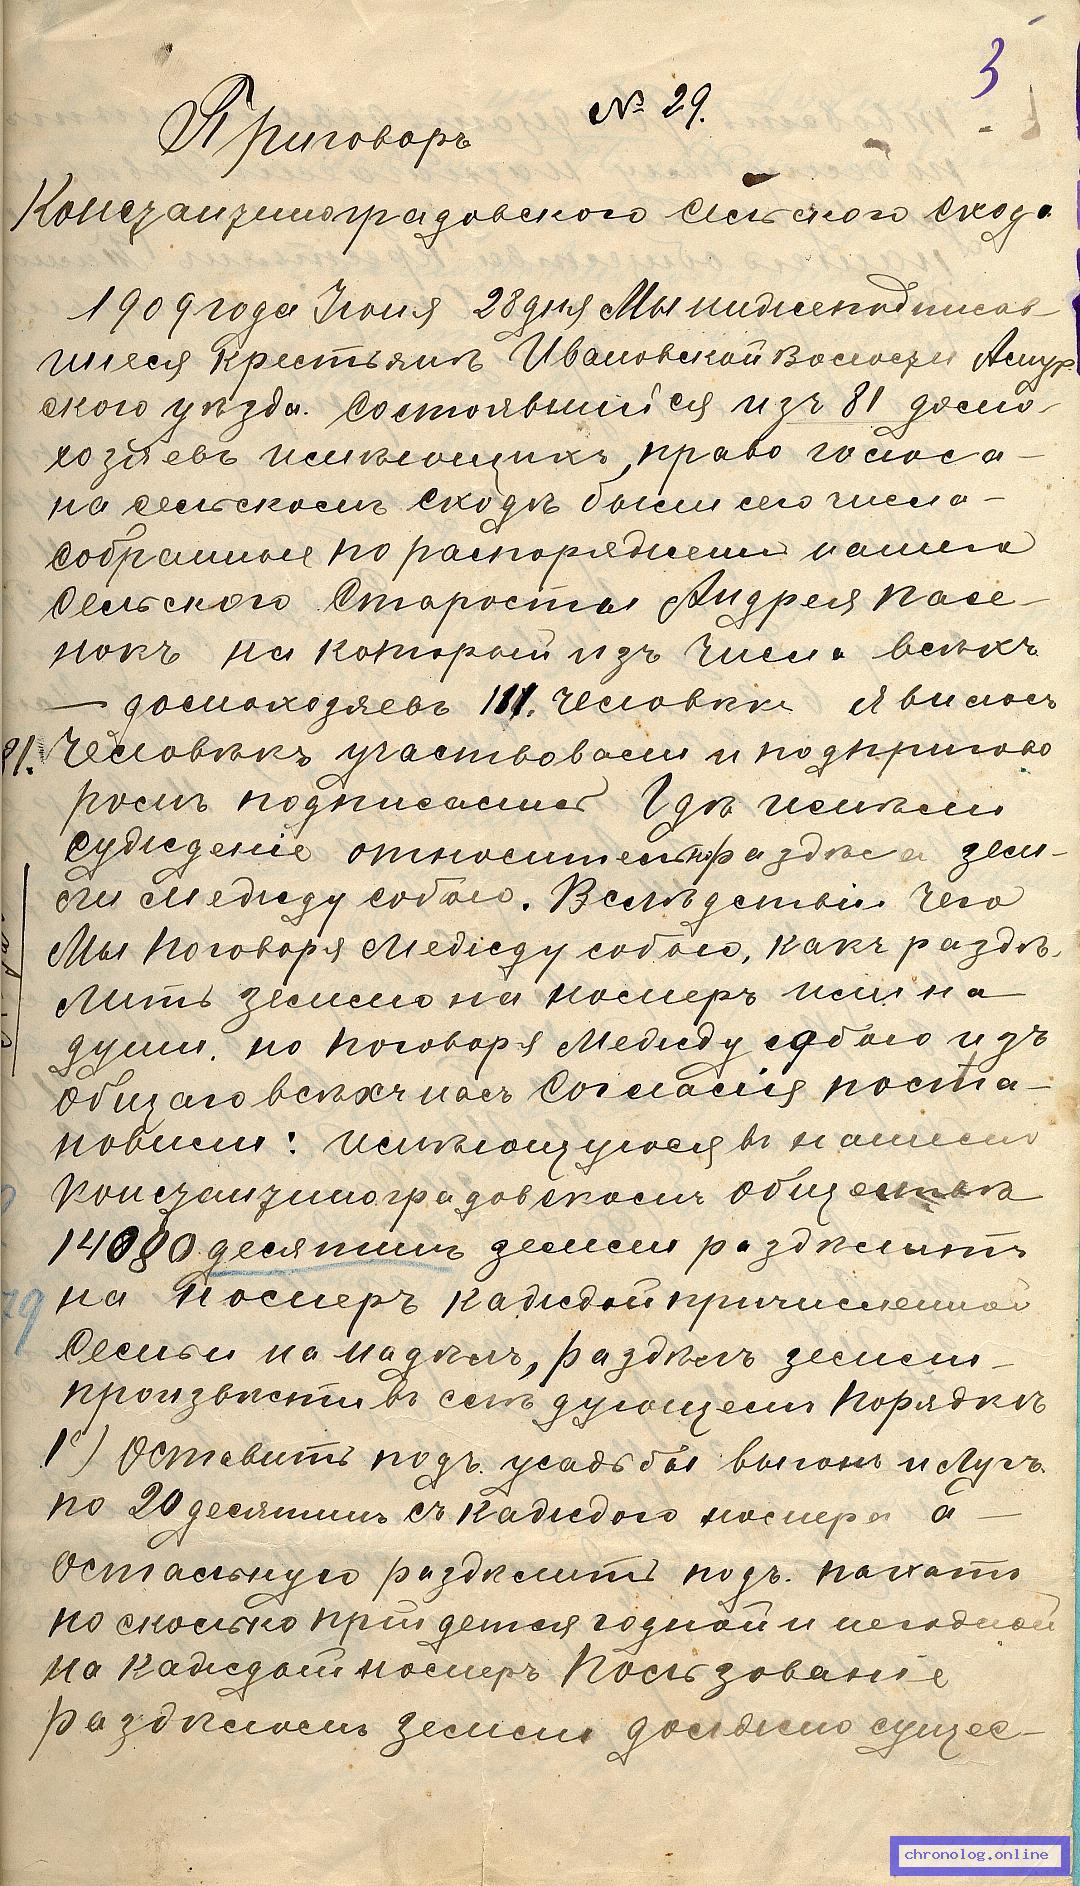 3
№ 29.
Приговоръ
Константиноградовского сельского схода
1909 года Июня 28 дня Мы нижеподписав-
шиеся крестьяне Ивановской волости Амур-
ского уѣзда. Состоявшийся изъ 81 домо-
хозяевъ имѣющихъ, право голоса-
на сельскомъ сходѣ были сего числа-
собранные по распоряжению нашего
Сельского Старосты Андрея Пасе-
нокъ на который изъ числа всѣхъ
— домохозяевъ 111. человѣкъ явилось
81. Человѣкъ участвовали и подпригово
ромъ подписались Гдѣ имѣли
суждение относительно раздѣла зем-
ли между собою. Вслѣдствии чего
Мы поговоря между собою, какъ раздѣ-
лить землю на номеръ или на
души. но поговоря между собою изъ
общаго всѣхъ насъ согласія поста-
новили: имѣющуюся въ нашемъ
Константиноградовскомъ обществѣ
14080 десятинъ земли раздѣлить
на номеръ каждой причисленной
Семьи на надѣлъ, раздѣлъ земли-
произвѣсти въ слѣдующемъ порядкѣ
1е) Оставить подъ. усадьбы выгонъ и лугъ.
по 20 десятинъ съ каждого номера а-
остальную раздѣлить подъ. пахать
по сколько придется годной и негодной
на каждый номеръ Пользованіе
раздѣломъ земли должно сущес-
chronolog.online